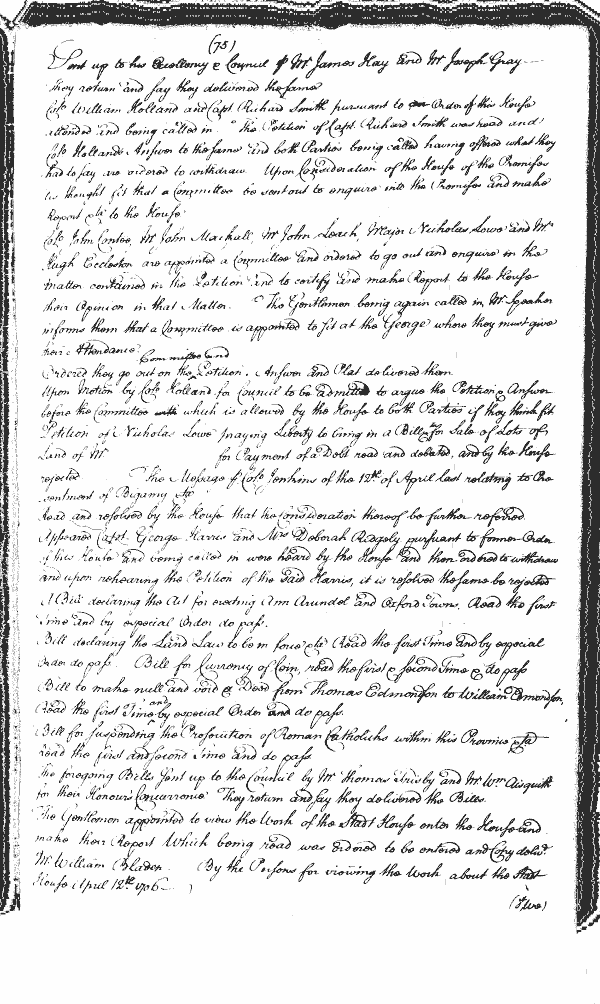 (75)
Sent up to his Excellency & Council p Mr James Hay and Mr Joseph Gray
They return and say they delivered the same
Colo William Holland and Capt Richard Smith pursuant to Order of this House
attended and being called in. The Petition of Capt. Richard Smith was read and
Colo Hollands Answer to the same and both Parties being called having offered what they
had to say are ordered to withdraw. Upon Consideration of the House of the Premises
is thought fit that a Committee be sent out to enquire into the Premises and make
Report to the House
Colo John Contee, Mr John Mackall, Mr John Leach, Major Nicholas Lowe and Mr
Hugh Eccleston are appointed a Committee and ordered to go out and enquire in the
matter contained in the Petition and to certify and make Report to the House
their Opinion in that Matter. The Gentlemen being again called in Mr Speaker
informs them that a Committee is appointed to sit at the George where they must give
their Attendance
Committee and
Ordered they go out on the Petition. Answer and Plat delivered them
Upon Motion by Colo Holland for Council to be admitted to argue the Petition & Answer
before the Committee which is allowed by the House to both Parties if they think fit
Petition of Nicholas Lowe praying Liberty to bring in a Bill for Sale of Lots of
Land of Mr for Payment of a Debt read and debated, and by the House
rejected The Message p Colo Jenkins of the 12th of April last relating to Pre
sentment of Bigamy
Read and resolved by the House that the Consideration thereof be further referred
Appeared Capt. George Harris and Mrs Deborah Ridgely pursuant to former Order
of this House and being called in were heard by the House and then ordered to withdraw
and upon rehearing the Petition of the said Harris, it is resolved the same be rejected
A Bill declaring the Act for erecting Ann Arundel and Oxford Towns, Read the first
Time and by especial Order do pass.
Bill declaring the Land Law to be in force Read the first Time and by especial
Order do pass. Bill for Currency of Coin, read the first & second Time & do pass
Bill to make null and void a Deed from Thomas Edmondson to William Edmondson,
and
Read the first Time by especial Order and do pass.
Bill for suspending the Prosecution of Roman Catholicks within this Province
read the first and second Time and do pass
The foregoing Bills sent up to the Council by Mr Thomas Frisby and Mr Wm Aisquith
for their Honours Concurrence They return and say they delivered the Bills.
The Gentlemen appointed to view the Work of the Stadt House enter the House and
make their Report Which being read was ordered to be entered and Copy delivd
Mr William Bladen. By the Persons for viewing the Work about the Stadt
House April 12th 1706
(Two)